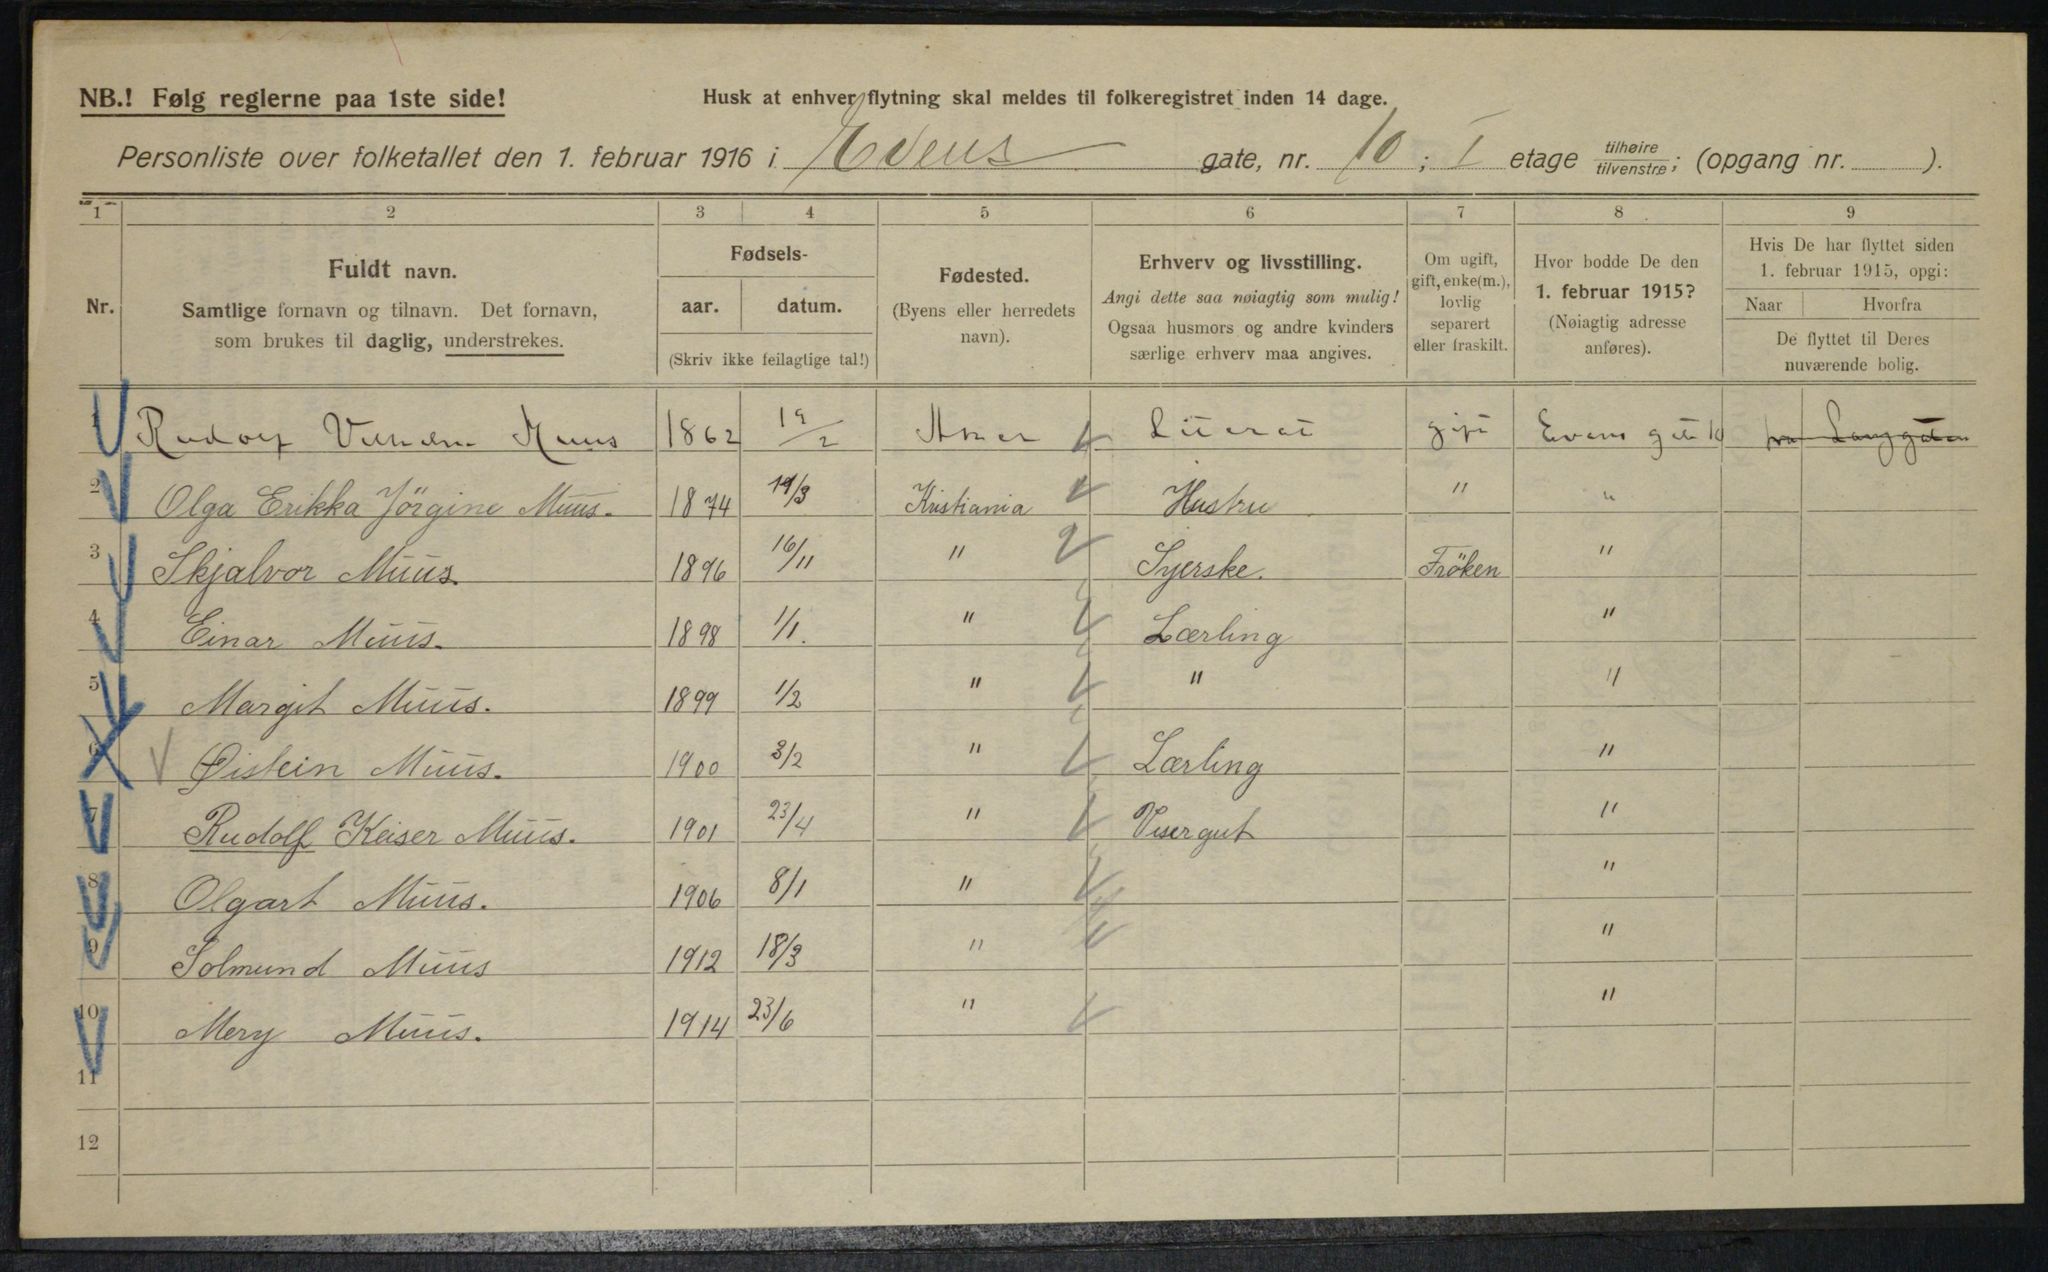 NB.! Følg reglerne paa 1ste side!
Husk at enhver flytning skal meldes til folkeregistret inden 14 dage.
Personliste over folketallet den 1. februar 1916 i Evens gate, nr. 10; I etage tilhøire/tilvenstre; (opgang nr. ).
1 2 3 4 5 6 7 8 9
Nr.
Fuldt navn.
Samtlige fornavn og tilnavn. Det fornavn,
som brukes til daglig, understrekes.
Fødsels-
aar. datum.
(Skriv ikke feilagtige tal!)
Fødested.
(Byens eller herredets
navn).
Erhverv og livsstilling.
Angi dette saa nøiagtig som mulig!
Ogsaa husmors og andre kvinders
særlige erhverv maa angives.
Om ugift,
gift, enke(m.),
lovlig
separert
eller fraskilt.
Hvor bodde De den
1. februar 1915?
(Nøiagtig adresse
anføres).
Hvis De har flyttet siden
1. februar 1915, opgi:
Naar Hvorfra
De flyttet til Deres
nuværende bolig.
1 Rudolf Vilhelm Muus 1862 19/2 Asker Literat gift Evens gate 10 fra Langgaten
2 Olga Erikka Jörgine Muus. 1874 14/3 Kristiania Hustru " "
3 Skjalvor Muus. 1896 16/11 " Syerske. Fröken "
4 Einar Muus. 1898 1/1. " Lærling "
5 Margit Muus. 1899 1/2 " " "
6 Øistein Muus. 1900 3/2 " Lærling "
7 Rudolf Keiser Muus. 1901 23/4 " Visergut "
8 Olgart Muus. 1906 8/1 " "
9 Solmund Muus 1912 18/3 " "
10 Mery Muus. 1914 23/6 " "
11
12